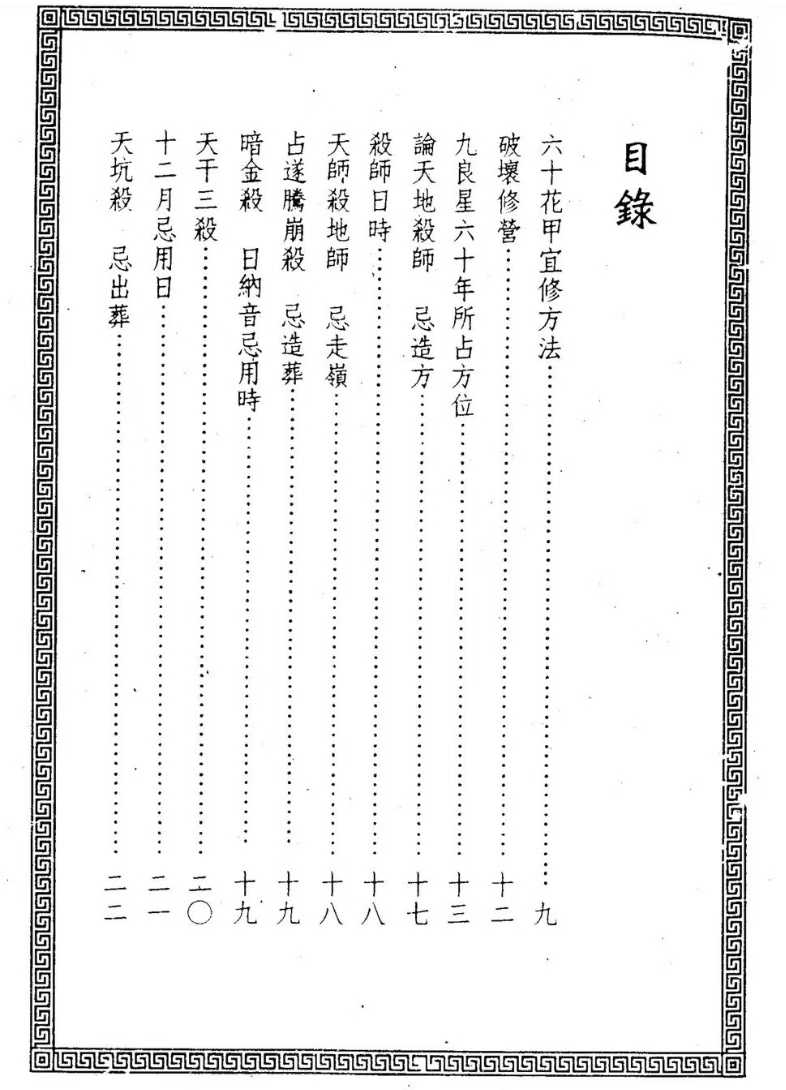 目錄
六十花甲宜修方法……九
破壞修營……十二
九良星六十年所占方位……十三
論天地殺師 忌造方……十七
殺師日時……十八
天師殺地師 忌走嶺……十八
占遂騰崩殺 忌造葬……十九
暗金殺 日納音忌用時……十九
天干三殺……二〇
十二月忌用日……二一
天坑殺 忌出葬……二二